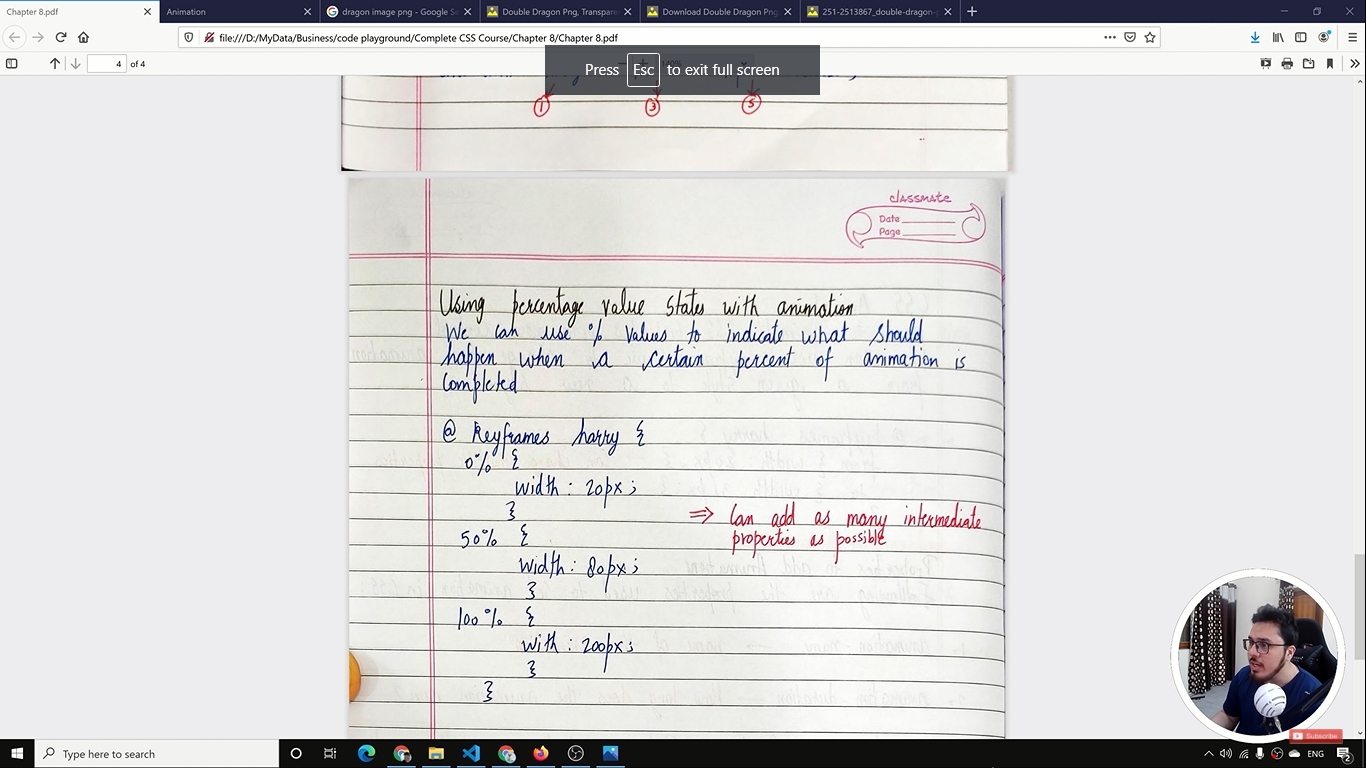 Chapter 8.pdf
Animation
dragon image png - Google Se
Double Dragon Png, Transpare
Download Double Dragon Png
251-2513867_double-dragon-
file:///D:/MyData/Business/code playground/Complete CSS Course/Chapter 8/Chapter 8.pdf
4 of 4
Press Esc to exit full screen
1 3 5
classmate
Date
Page
Using percentage value states with animation
We can use % values to indicate what should
happen when a certain percent of animation is
completed
@ Keyframes harry {
0% {
width : 20px ;
}
⇒ Can add as many intermediate
properties as possible
50% {
width : 80px ;
}
100% {
with : 200px ;
}
}
Subscribe
Type here to search
ENG
2